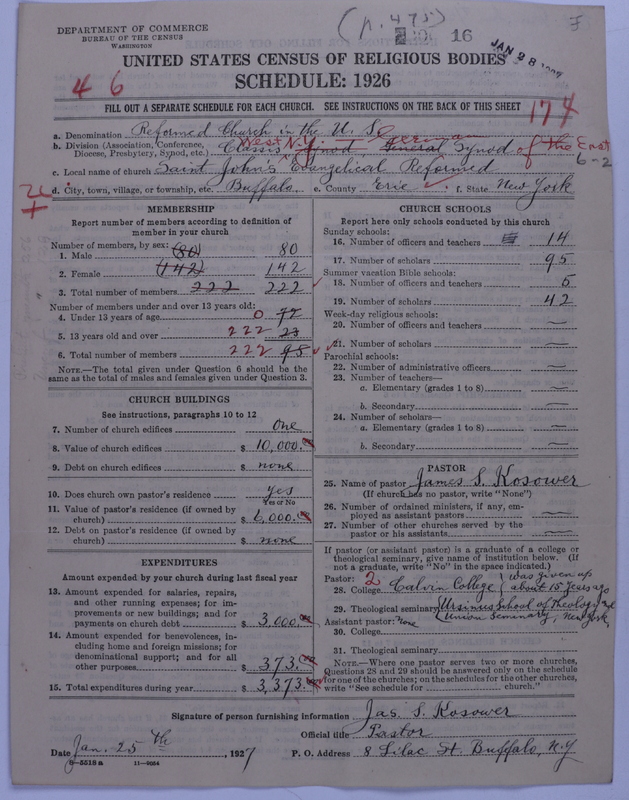 (p. 475)
16
JAN 28
DEPARTMENT OF COMMERCE
BUREAU OF THE CENSUS
WASHINGTON
UNITED STATES CENSUS OF RELIGIOUS BODIES
4 6
SCHEDULE: 1926
FILL OUT A SEPARATE SCHEDULE FOR EACH CHURCH. SEE INSTRUCTIONS ON THE BACK OF THIS SHEET
174
a. Denomination Reformed Church in the U. S.
b. Division (Association, Conference, Diocese, Presbytery, Synod, etc.) Classis West N.Y. Synod, General Synod German of the East
6-2
c. Local name of church Saint John's Evangelical Reformed
d. City, town, village, or township, etc. Buffalo e. County Erie f. State New York
MEMBERSHIP
Report number of members according to definition of member in your church
Number of members, by sex:
1. Male (80) 80
2. Female (142) 142
3. Total number of members 222 222
Number of members under and over 13 years old:
4. Under 13 years of age 0 72
5. 13 years old and over 222 23
6. Total number of members 222 95
NOTE.—The total given under Question 6 should be the same as the total of males and females given under Question 3.
CHURCH BUILDINGS
See instructions, paragraphs 10 to 12
7. Number of church edifices One
8. Value of church edifices $ 10,000.00
9. Debt on church edifices $ none
10. Does church own pastor's residence yes
Yes or No
11. Value of pastor's residence (if owned by church) $ 6,000.00
12. Debt on pastor's residence (if owned by church) $ none
EXPENDITURES
Amount expended by your church during last fiscal year
13. Amount expended for salaries, repairs, and other running expenses; for improvements or new buildings; and for payments on church debt $ 3,000.00
14. Amount expended for benevolences, including home and foreign missions; for denominational support; and for all other purposes $ 373.00
15. Total expenditures during year $ 3,373.00
CHURCH SCHOOLS
Report here only schools conducted by this church
Sunday schools:
16. Number of officers and teachers 14
17. Number of scholars 95
Summer vacation Bible schools:
18. Number of officers and teachers 5
19. Number of scholars 42
Week-day religious schools:
20. Number of officers and teachers —
21. Number of scholars —
Parochial schools:
22. Number of administrative officers —
23. Number of teachers—
a. Elementary (grades 1 to 8) —
b. Secondary —
24. Number of scholars—
a. Elementary (grades 1 to 8) —
b. Secondary —
PASTOR
25. Name of pastor James S. Kosower
(If church has no pastor, write "None")
26. Number of ordained ministers, if any, employed as assistant pastors —
27. Number of other churches served by the pastor or his assistants —
If pastor (or assistant pastor) is a graduate of a college or theological seminary, give name of institution below. (If not a graduate, write "No" in the space indicated.)
Pastor: 2
28. College Calvin College (was given up about 15 years ago
29. Theological seminary Ursinus School of Theology and Union Seminary, New York
Assistant pastor: None
30. College
31. Theological seminary
NOTE.—Where one pastor serves two or more churches, Questions 28 and 29 should be answered only on the schedule for one of the churches; on the schedules for the other churches, write "See schedule for church."
Signature of person furnishing information Jas. S. Kosower
Official title Pastor
Date Jan. 25th, 1927 P. O. Address 8 Lilac St. Buffalo, N.Y
8—5518 a 11—9034